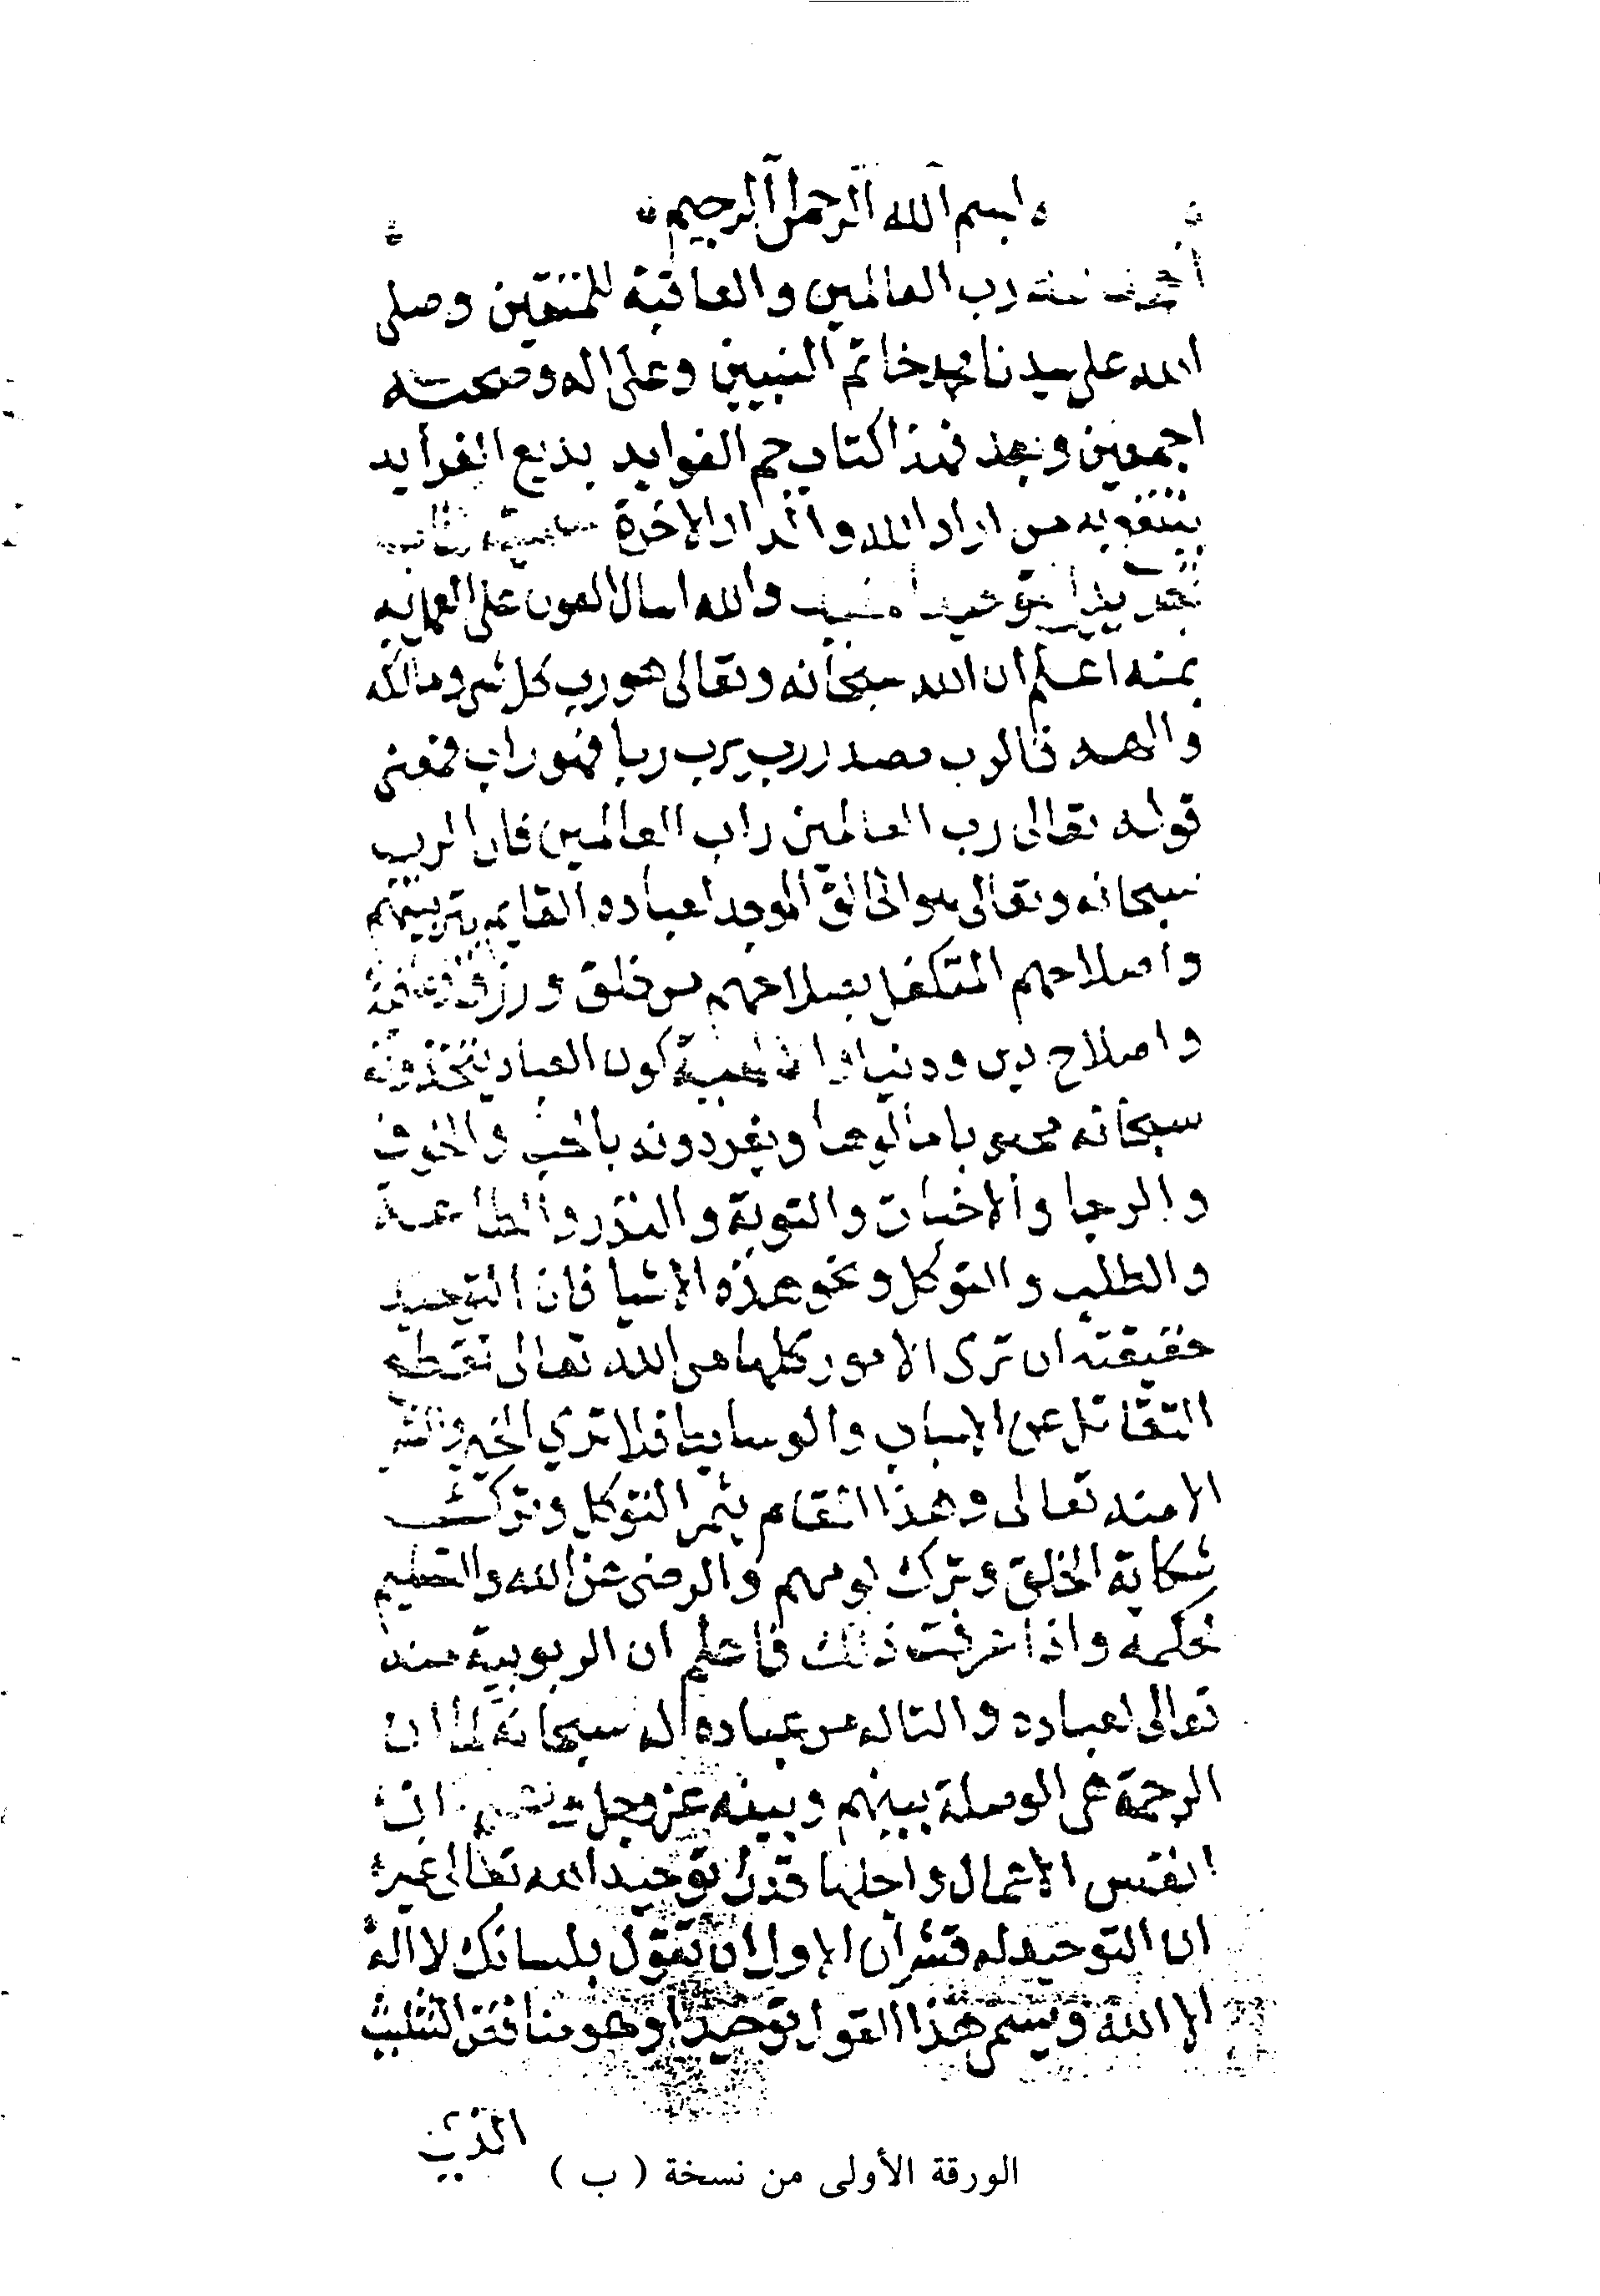 بسم الله الرحمن الرحيم
الحمد لله رب العالمين والعاقبة للمتقين وصلى
الله على سيدنا محمد خاتم النبيين وعلى اله وصحبه
اجمعين وبعد فهذا كتاب جم الفوايد بديع الفرايد
ينتفع به من اراد الله والدار الاخرة سميته
تجريد التوحيد المفيد والله اسال العون على العمل به
بمنه اعلم ان الله سبحانه وتعالى هو رب كل شي ومالكه
والهه فالرب مصدر رب يرب ربا فهو راب فمعنى
قوله تعالى رب العالمين راب العالمين فان الرب
سبحانه وتعالى هو الخالق الموجد لعباده القايم بتربيتهم
واصلاحهم المتكفل بصلاحهم من خلق ورزق وعافية
واصلاح دين ودنيا والالهية كون العباد يتخذونه
سبحانه محبوبا مالوها ويفردونه بالحب والخوف
والرجا والاخبات والتوبة والنذر والطاعة
والطلب والتوكل ونحو هذه الاشيا فان التوحيد
حقيقته ان ترى الامور كلها من الله تعالى تقطع
التفاتك عن الاسباب والوسايط فلا ترى الخير والشر
الا منه تعالى وهذا المقام يثمر التوكل وترك
شكاية الخلق وترك لومهم والرضى عن الله والتسليم
لحكمه واذا عرفت ذلك فاعلم ان الربوبية منه
تعالى لعباده والتاله من عباده له سبحانه كما ان
الرحمة هي الوصلة بينهم وبينه عز وجل واعلم ان
انفس الاعمال واجلها قدرا توحيد الله تعالى غير
ان التوحيد له قشران الاول ان تقول بلسانك لا اله
الا الله ويسمى هذا القول توحيدا وهو مناقض التثليث
الذي
الورقة الأولى من نسخة ( ب )